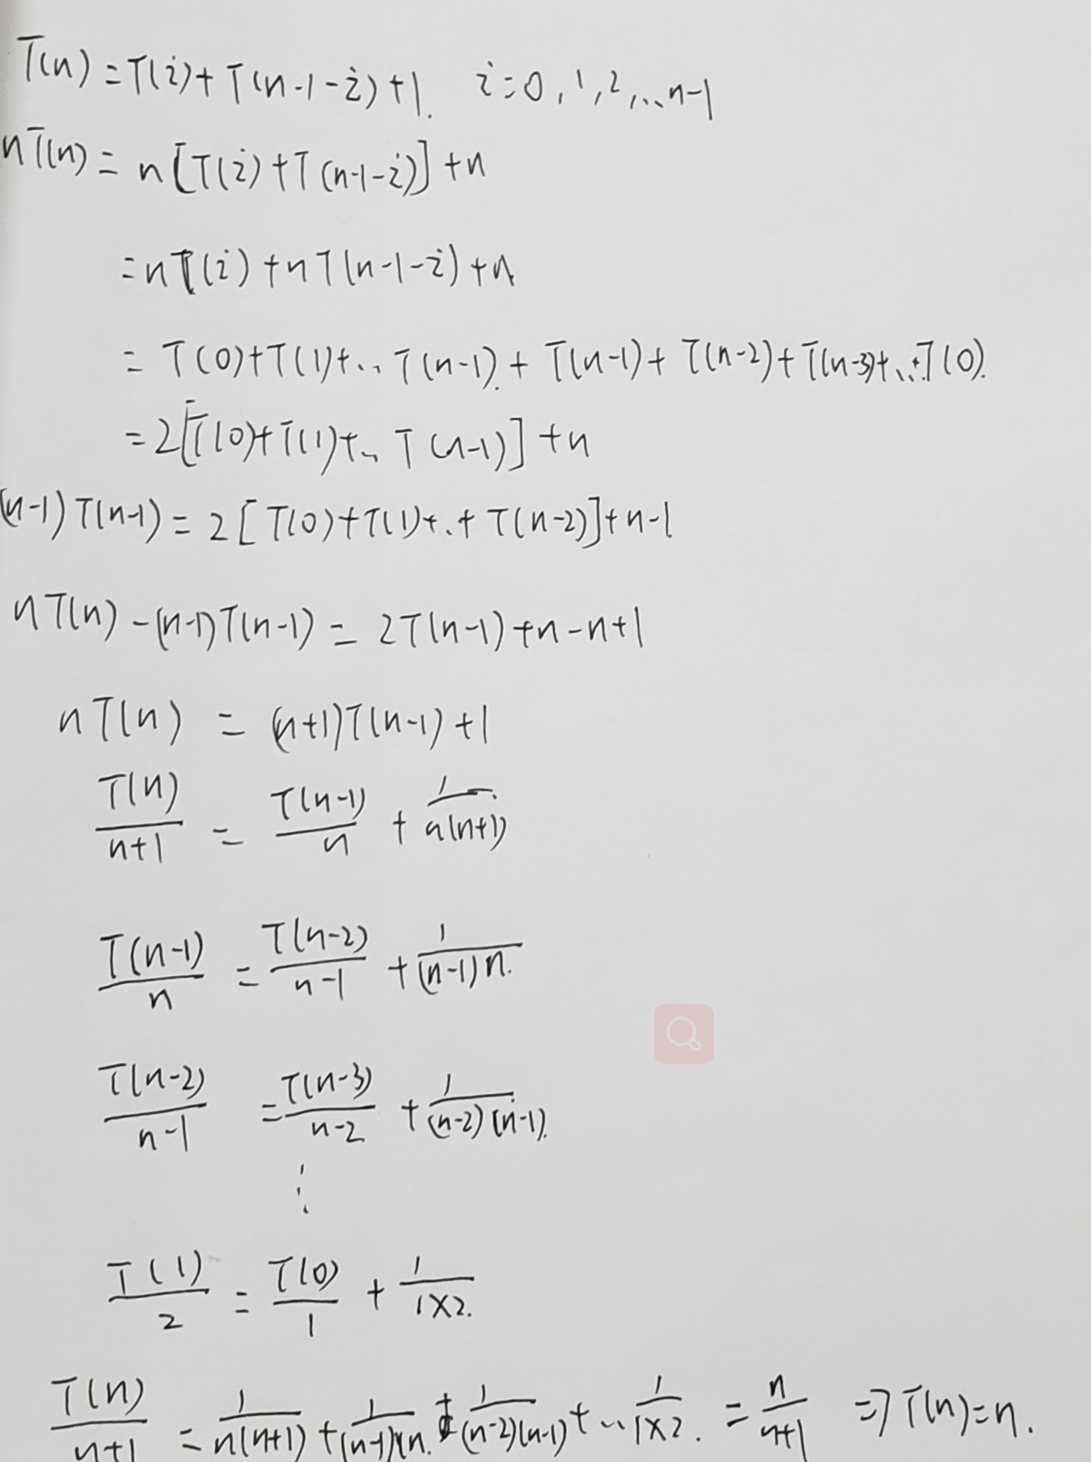 T(n) = T(i) + T(n-1-i) + 1. i = 0, 1, 2, ... n-1
nT(n) = n[T(i) + T(n-1-i)] + n
= nT(i) + nT(n-1-i) + n
= T(0) + T(1) + .. T(n-1) + T(n-1) + T(n-2) + T(n-3) + ... + T(0).
= 2[T(0) + T(1) + .. T(n-1)] + n
(n-1)T(n-1) = 2[T(0) + T(1) + .. + T(n-2)] + n-1
nT(n) - (n-1)T(n-1) = 2T(n-1) + n - n + 1
nT(n) = (n+1)T(n-1) + 1
T(n)/(n+1) = T(n-1)/n + 1/(n(n+1))
T(n-1)/n = T(n-2)/(n-1) + 1/((n-1)n).
T(n-2)/(n-1) = T(n-3)/(n-2) + 1/((n-2)(n-1)).
⋮
T(1)/2 = T(0)/1 + 1/(1×2).
T(n)/(n+1) = 1/(n(n+1)) + 1/((n-1)n) + 1/((n-2)(n-1)) + ... 1/(1×2). = n/(n+1) => T(n) = n.